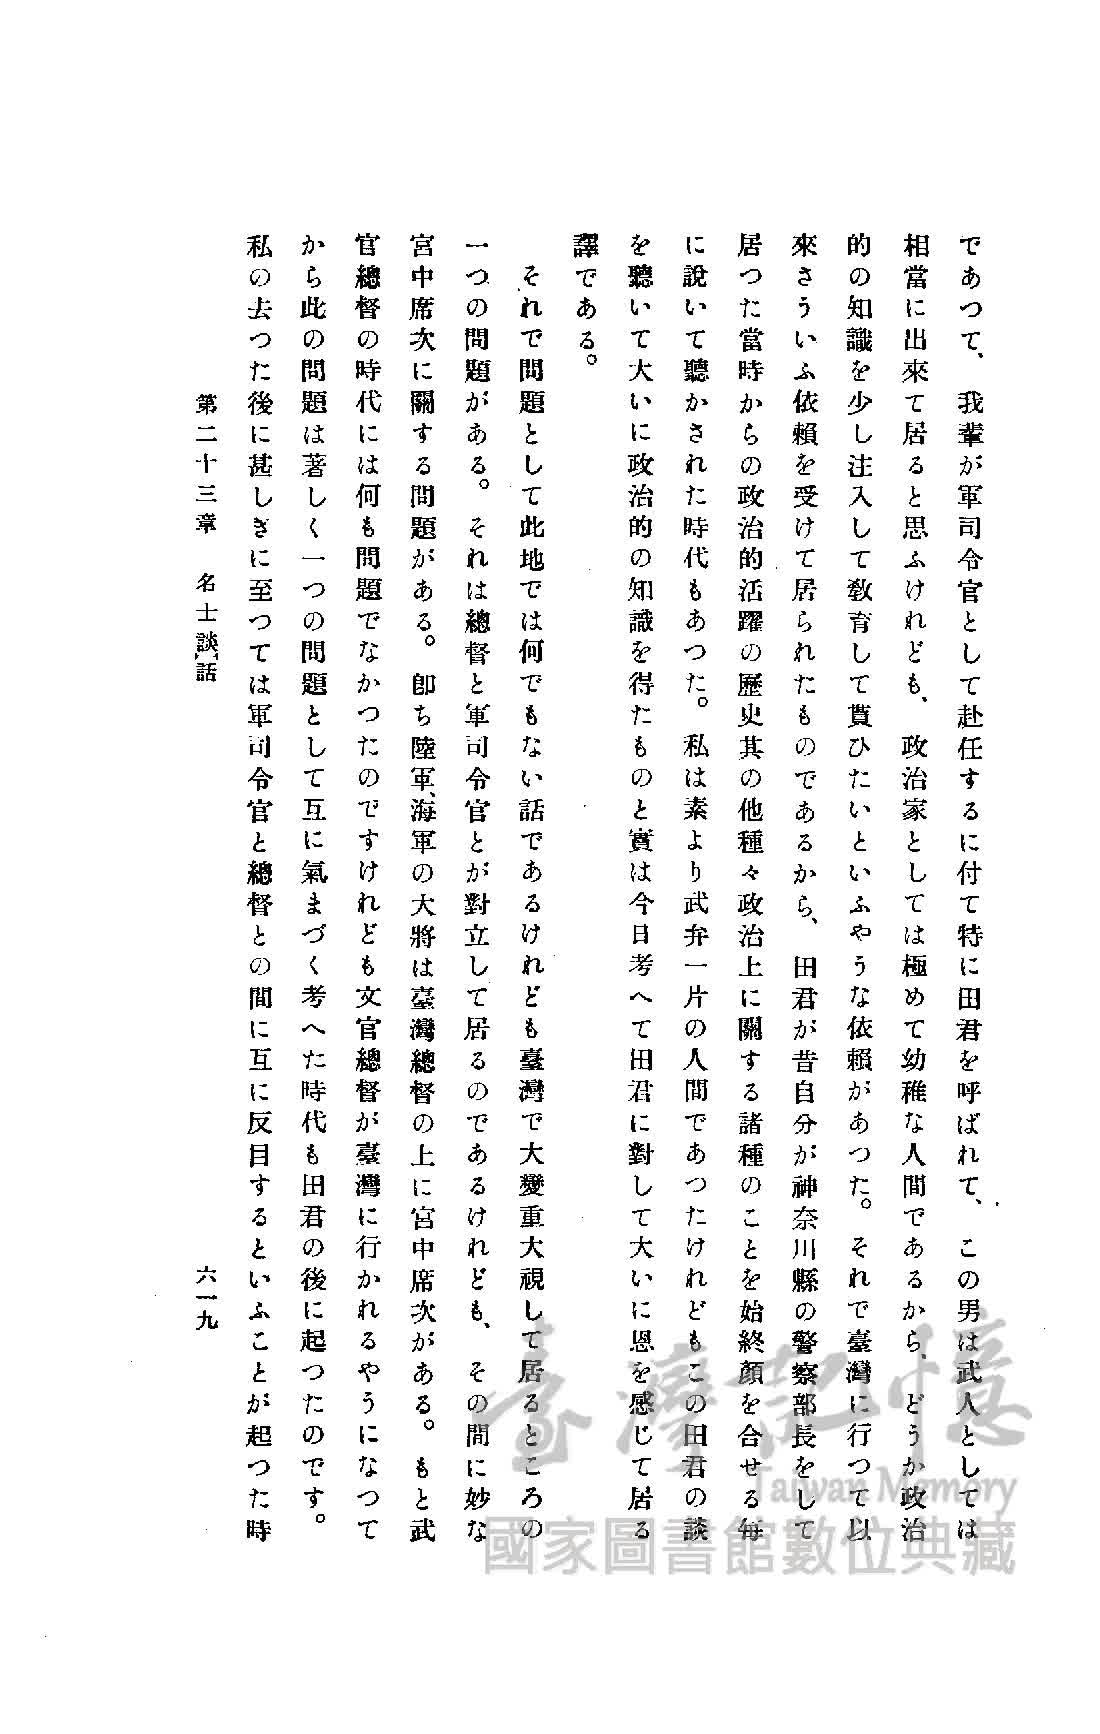 であつて、我輩が軍司令官として赴任するに付て特に田君を呼ばれて、この男は武人としては
相當に出來て居ると思ふけれども、政治家としては極めて幼稚な人間であるから、どうか政治
的の知識を少し注入して敎育して貰ひたいといふやうな依賴があつた。それで臺灣に行つて以
來さういふ依賴を受けて居られたものであるから、田君が昔自分が神奈川縣の警察部長をして
居つた當時からの政治的活躍の歷史其の他種々政治上に關する諸種のことを始終顏を合せる每
に說いて聽かされた時代もあつた。私は素より武弁一片の人間であつたけれどもこの田君の談
を聽いて大いに政治的の知識を得たものと實は今日考へて田君に對して大いに恩を感じて居る
譯である。
それで問題として此地では何でもない話であるけれども臺灣で大變重大視して居るところの
一つの問題がある。それは總督と軍司令官とが對立して居るのであるけれども、その間に妙な
宮中席次に關する問題がある。卽ち陸軍、海軍の大將は臺灣總督の上に宮中席次がある。もと武
官總督の時代には何も問題でなかつたのですけれども文官總督が臺灣に行かれるやうになつて
から此の問題は著しく一つの問題として互に氣まづく考へた時代も田君の後に起つたのです。
私の去つた後に甚しきに至つては軍司令官と總督との間に互に反目するといふことが起つた時
第二十三章　名士談話
六一九
臺灣記憶
Taiwan Memory
國家圖書館數位典藏